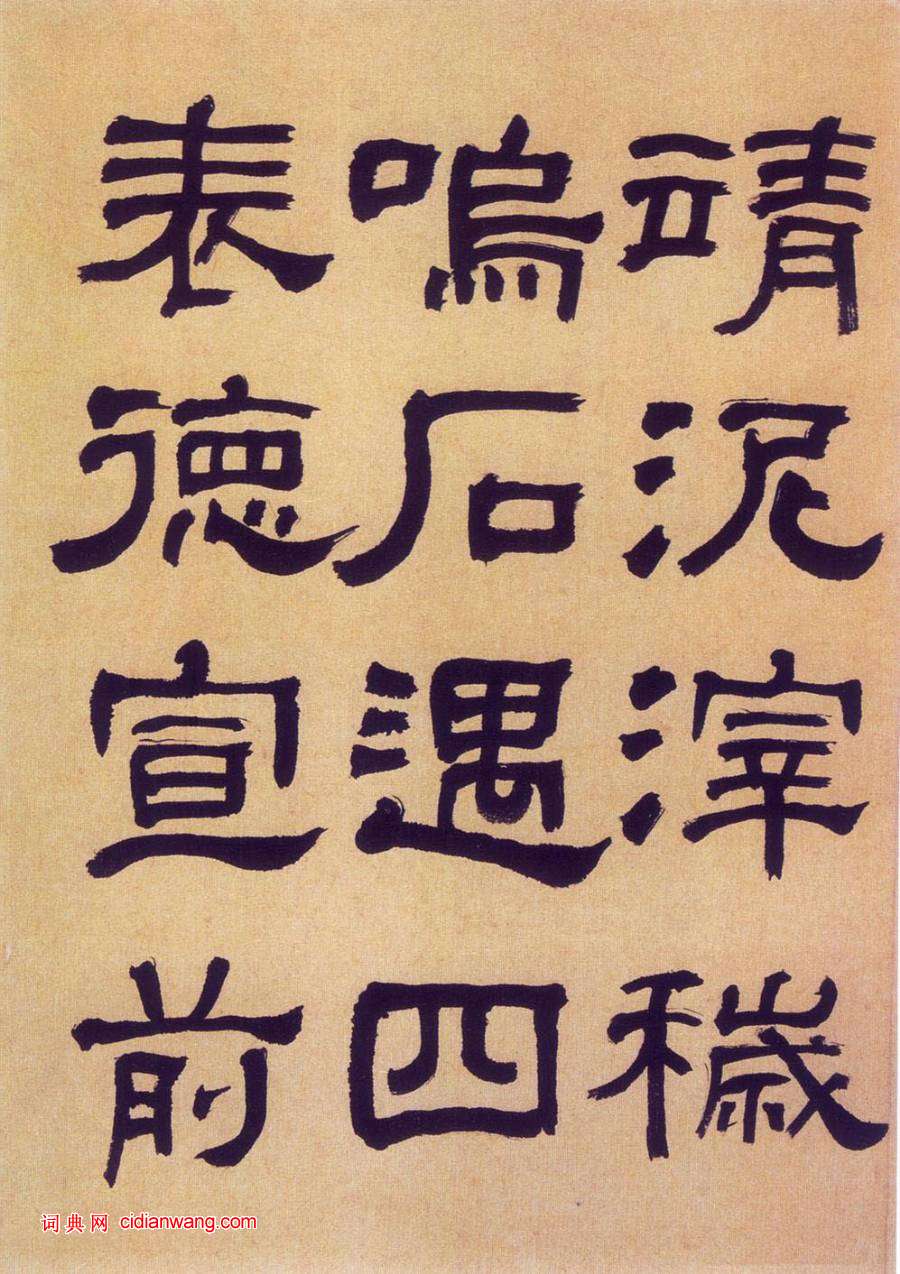 靖泥滓穢
嗚石遇四
表德宣前
词典网 cidianwang.com